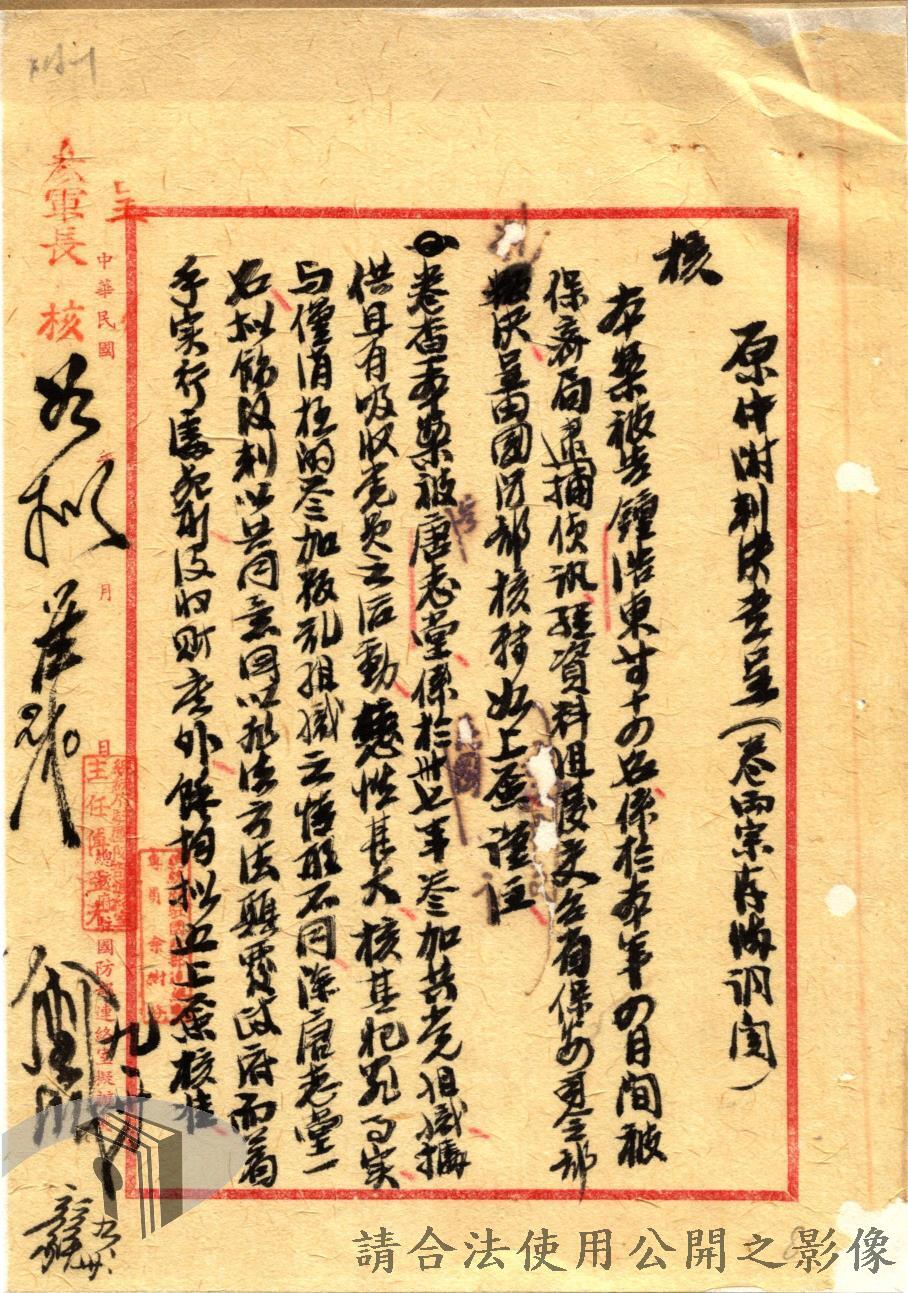 原件附判決書呈(卷兩宗存備調閱)
核
本案被告鍾浩東等十四名係於本年四月間被
保密局逮捕偵訊經資料組移交台省保安司令部
判決呈由國防部核轉如上原謹註
卷查本案被唐志堂係於卅七年參加共党組織據
供且有吸收党員之活動 性甚大核其犯罪事實
与僅消極的參加叛乱組織之情形不同除唐志堂一
名拟飭改判以共同意圖以非法方法顛覆政府而着
手实行處死刑没收財產外餘均拟照上原核准
呈
參軍長 核
中華民國
月
日
如拟
主任傅
國防部連絡室擬
九
請合法使用公開之影像